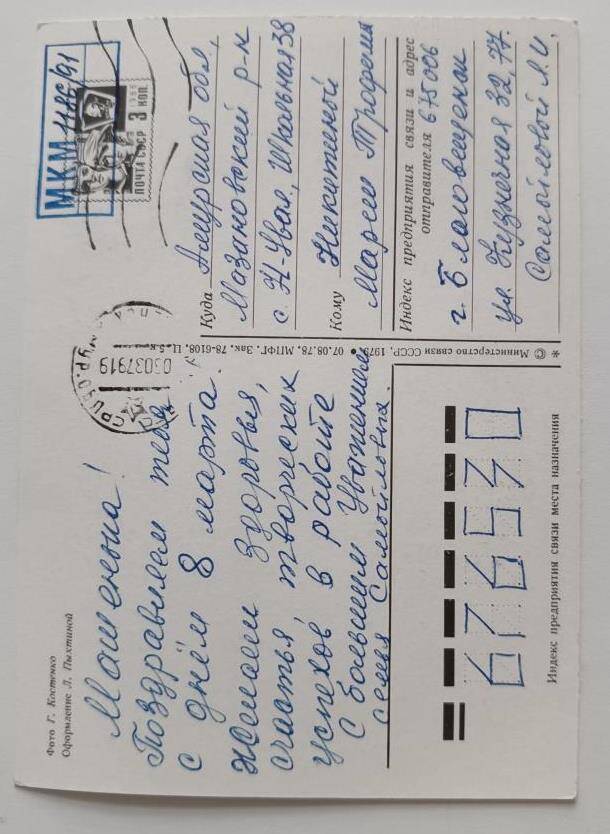 Фото Г. Костенко
Оформление Л. Пыхтиной
Машенька!
Поздравляем тебя
с днём 8 марта.
Желаем здоровья,
счастья, творческих
успехов в работе
С большим Уважением
семья Самойловых.
676530
Индекс предприятия связи места назначения
* © Министерство связи СССР, 1979. • 07.08.78. МПФГ. Зак. 78-6108. Ц. 5 к.
03037919
МКМ 1186/91
1966
ПОЧТА СССР 3 КОП.
Куда Амурская обл,
Мазановский р-н
с. Н-Увал, Школьная 38
Кому Никитиной
Марии Трофимн
Индекс предприятия связи и адрес
отправителя 675006
г. Благовещенск
ул. Кузнечная 32, 77.
Самойловой Л.И.